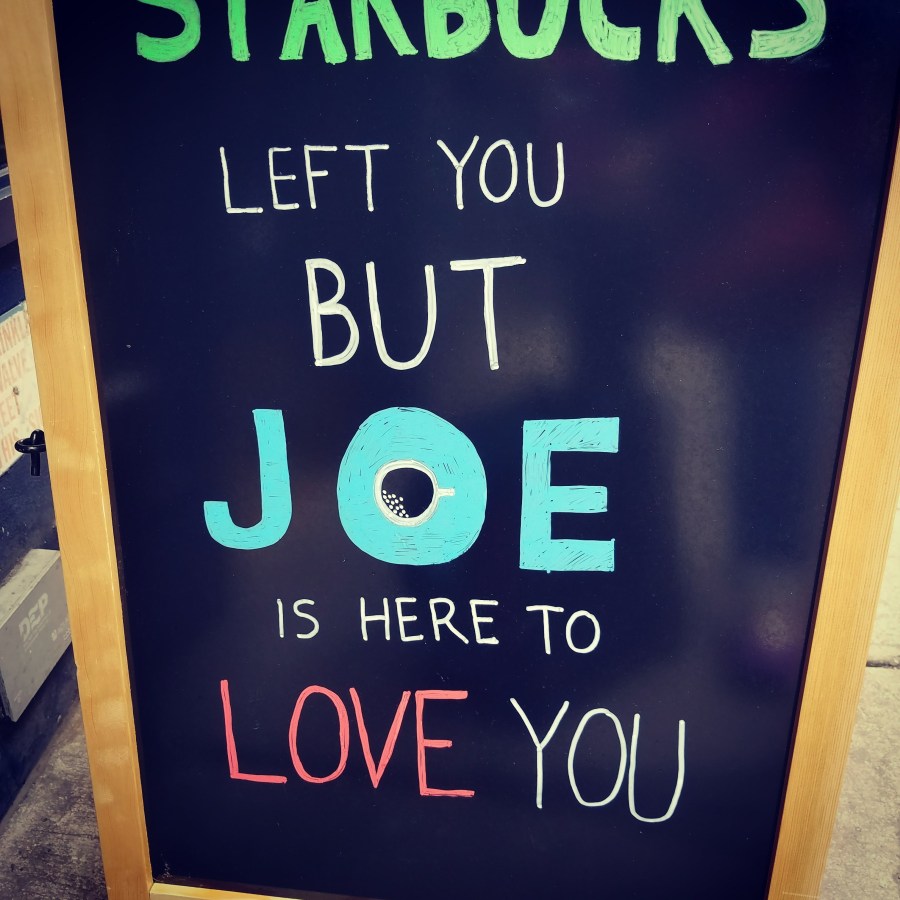 STARBUCKS
LEFT YOU
BUT
JOE
IS HERE TO
LOVE YOU
DEP